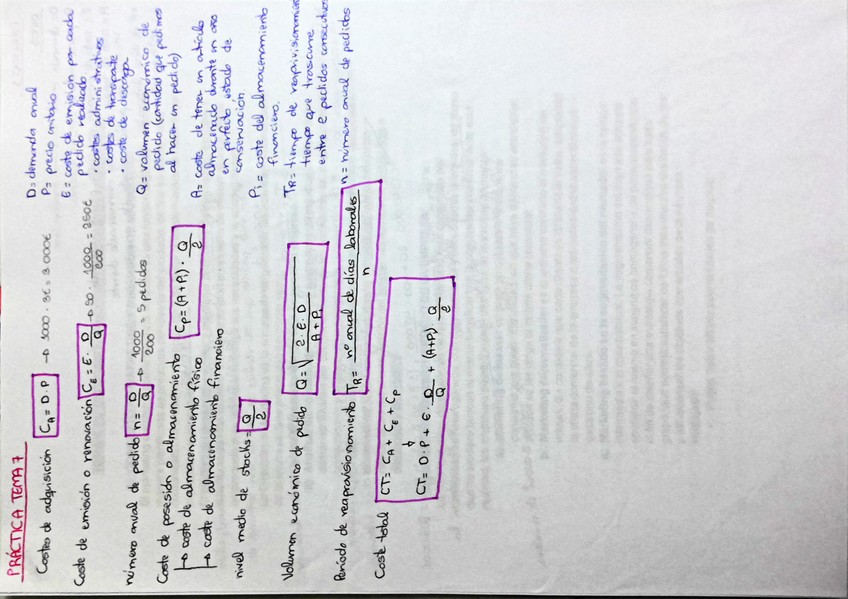 PRÁCTICA TEMA 7
Costes de adquisición C_A = D · P → 1000 · 3€ = 3000€
Coste de emisión o renovación C_E = E · D/Q → 50 · 1000/200 = 250€
número anual de pedido n = D/Q → 1000/200 = 5 pedidos
Coste de posesión o almacenamiento C_P = (A + P_i) · Q/2
→ coste de almacenamiento físico
→ coste de almacenamiento financiero
nivel medio de stocks = Q/2
Volumen económico de pedido Q = √(2 · E · D / A + P_i)
Período de reaprovisionamiento T_R = nº anual de días laborales / n
Coste total CT = C_A + C_E + C_P
↓
CT = D · P + E · D/Q + (A + P_i) Q/2
D = demanda anual
P = precio unitario
E = coste de emisión por cada
pedido realizado
· costes administrativos
· costes de transporte
· coste de descarga
Q = volumen económico de
pedido (cantidad que pedimos
al hacer un pedido)
A = coste de tener un artículo
almacenado durante un año
en perfecto estado de
conservación
P_i = coste del almacenamiento
financiero.
T_R = tiempo de reaprivisionamiento
tiempo que trascurre
entre 2 pedidos consecutivos
n = número anual de pedidos